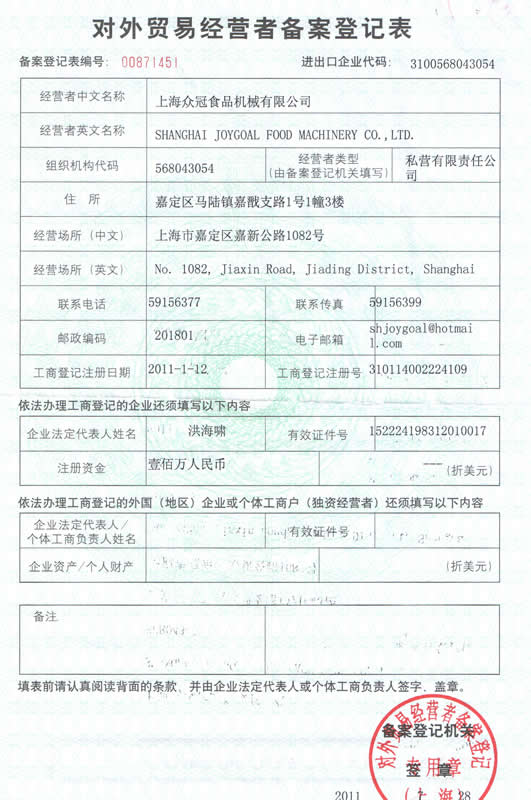 对外贸易经营者备案登记表
备案登记表编号: 00871451 进出口企业代码: 3100568043054
经营者中文名称 上海众冠食品机械有限公司
经营者英文名称 SHANGHAI JOYGOAL FOOD MACHINERY CO.,LTD.
组织机构代码 568043054 经营者类型 (由备案登记机关填写) 私营有限责任公
司
住 所 嘉定区马陆镇嘉戬支路1号1幢3楼
经营场所（中文） 上海市嘉定区嘉新公路1082号
经营场所（英文） No. 1082, Jiaxin Road, Jiading District, Shanghai
联系电话 59156377 联系传真 59156399
邮政编码 201801 电子邮箱 shjoygoal@hotmai
l.com
工商登记注册日期 2011-1-12 工商登记注册号 310114002224109
依法办理工商登记的企业还须填写以下内容
企业法定代表人姓名 洪海啸 有效证件号 152224198312010017
注册资金 壹佰万人民币 (折美元)
依法办理工商登记的外国（地区）企业或个体工商户（独资经营者）还须填写以下内容
企业法定代表人/
个体工商负责人姓名 有效证件号
企业资产/个人财产 (折美元)
备注
填表前请认真阅读背面的条款、并由企业法定代表人或个体工商负责人签字、盖章。
对外贸易经营者备案登记
备案登记机关
专用章
签 章
(上海)
2011 1 28